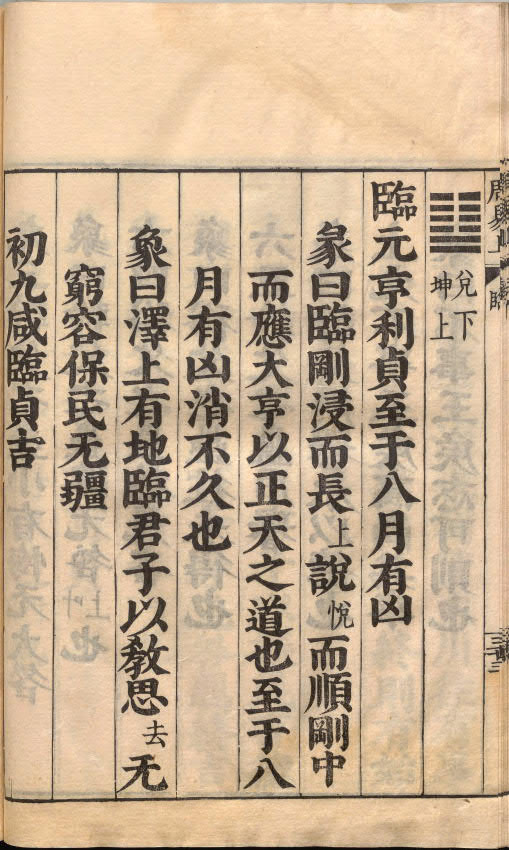 兌下
坤上
臨元亨利貞至于八月有凶
彖曰臨剛浸而長上說悅而順剛中
而應大亨以正天之道也至于八
月有凶消不久也
象曰澤上有地臨君子以敎思去无
窮容保民无疆
初九咸臨貞吉